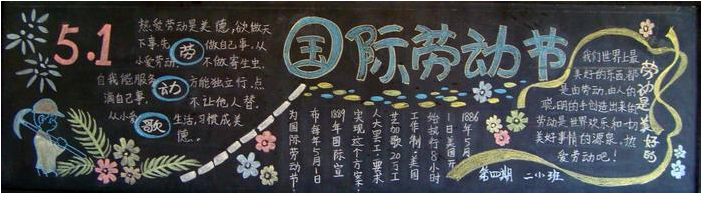 5.1
热爱劳动是美德,欲做天
下事先劳 做自己事,从
小爱劳动 不做寄生虫,
自我能服务 动 方能独立行,点
滴自己事, 不让他人替,
从小爱 歌 生活,习惯成美
德。
国际劳动节
1886年5月
1日美国开
始执行8小时
工作制,美国
芝加歌20万工
人大罢工,要求
实现这个方案.
1889年国际宣
布每年5月1日
为国际劳动节.
劳动是美好的
我们世界上最
美好的东西,都
是由劳动,由人的
聪明的手创造出来的
劳动是世界欢乐和一切
美好事情的源泉,热
爱劳动吧!
第四期 二小班